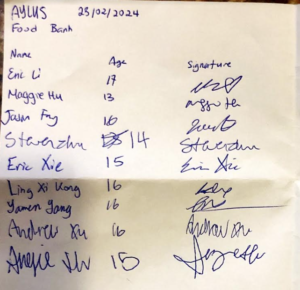 AYLUS 23/02/2024
Food Bank
Name Age Signature
Eric Li 17
Maggie Hu 13 Maggie Hu
Jason 16
Steven Zhu 14 Steven Zhu
Eric Xie 15 Eric Xie
Ling Xi Kong 16 Kong
Yamen Yang 16
Andrew Xu 16 Andrew Xu
Angie 15